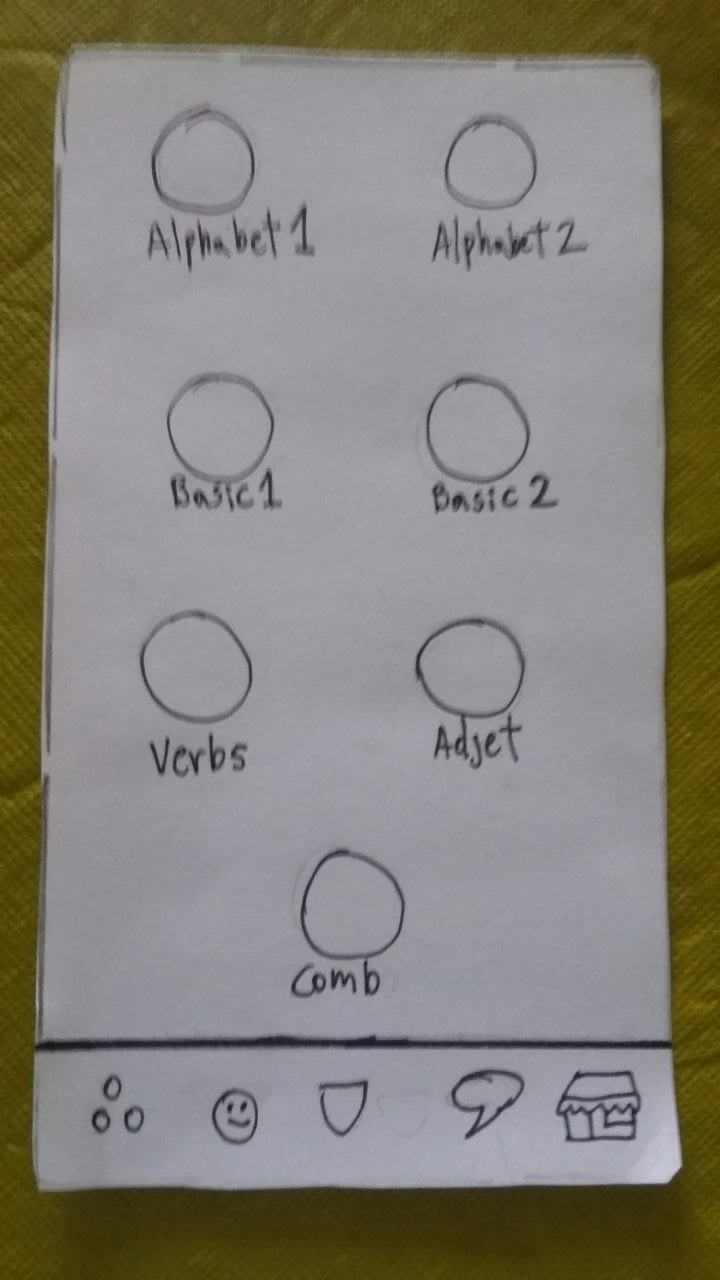 Alphabet 1 Alphabet 2
Basic 1 Basic 2
Verbs Adjet
Comb